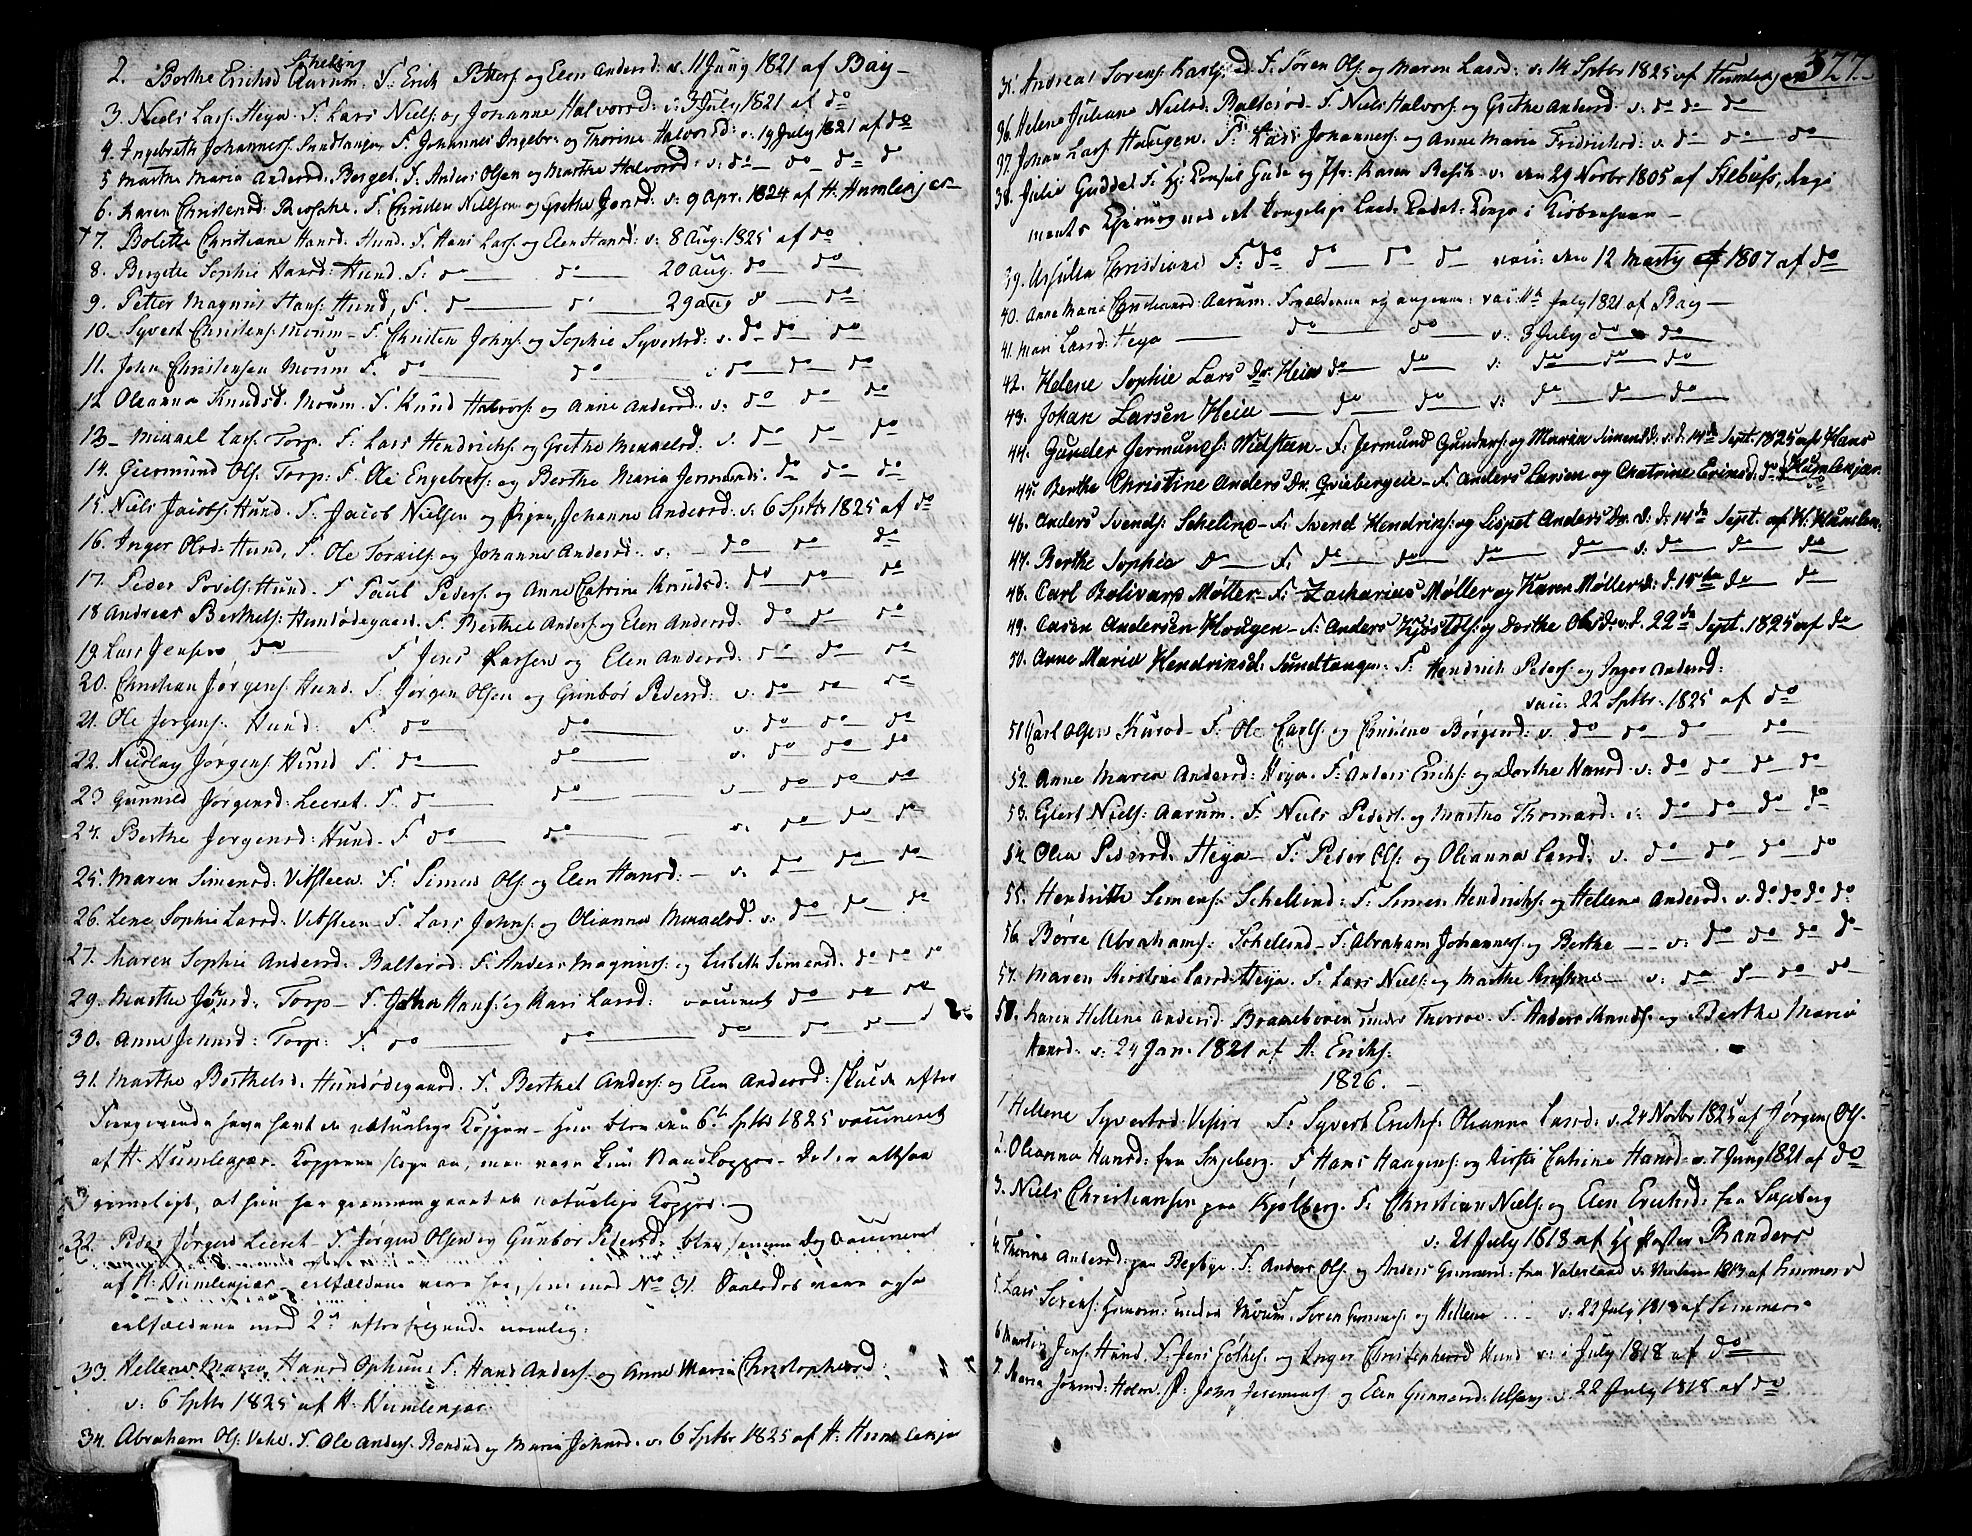 Scheling
2. Berthe Erichsd Aarum. F: Erich Peters: og Elen Andersd: v. 11 Juny 1821 af Bay –
3. Niels Lars: Heya. F: Lars Niels: og Johanne Halvorsd: v: 3 July 1821 af do
4. Ingebreth Johannes: Sundtangen F. Johannes Ingebr: og Thorine Halvorsd: v. 19 July 1821 af do
5 Marthe Maria Andersd. Berget. F. Anders Olsen og Marthe Halvorsd: v: do do do
6. Karen Christensd: F. Christen Nielsen og Grethe Jensd: v: 9 Apr. 1824 af H. Humlekjer
7. Bolette Christiane Hansd. Hund. F. Hans Lars: og Elen Hansd: v: 8 Aug. 1825 af do
8. Bergitte Sophie Hansd: Hund. F: do do 20 Aug. do do
9. Petter Magnus Hans: Hund, F. do do 29 Aug do do
10. Syvert Christens: Moum – F: Christen Johns: og Sophie Syvertsd: v. do do do
11. John Christensen Moum F. do do v do do do
12 Oleanna Knudsd. Moum. F. Knud Halvors: og Anne Andersd: v: do do do
13 – Mikkael Lars: Torp. F: Lars Hendrichs: og Grethe Mikkelsd: v. do do do
14. Giermund Ols: Torp: F. Ole Engebrets: og Berthe Maria Jermunds: do do do
15. Niels Jacobs: Hund. F. Jacob Nielsen og Johanne Andersd: v: 6 Sptbr 1825 af do
16. Inger Olsd: Hund, F. Ole Torkils: og Johanne Andersd. v: do do do
17. Peder Povels: Hund. F Paul Peders: og Anne Catrine Knudsd: do do do
18 Andreas Berthels: Hundødegaard. F. Berthel Anders: og Elen Andersd: do do do
19. Lars Jensen do F Jens Larsen og Elen Andersd: do do do
20. Christian Jørgens: Hund. F. Jørgen Olsen og Gunbor Pedersd: v. do do do
21. Ole Jørgens: Hund: F. do do v. do do do
22. Nicolay Jørgens: Hund F. do do v. do do do
23 Gunnild Jørgensd: Leeret. F. do do v do do do
24. Berthe Jørgensd: Hund. F do do v: do do do
25. Maren Simensd: Vitsteen. F: Simen Ols: og Elen Hansd: – v: do do do
26. Lene Sophie Larsd: Vitsteen F. Lars Johns: og Olianna Mikkelsd: v: do do do
27. Maren Sophie Andersd. Balterød. F: Anders Magnus: og Lisbeth Simensd. do do do
29. Marthe Johnsd: Torp – F. John Hans: og Kari Larsd: vaccineret do do do
30. Anne Johnsd: Torp: F: do do do do do
31. Marthe Berthelsd. Hundødegaard. F. Berthel Anders: og Elen Andersd: skulde efter
Foregivende have havt de naturlige Kopper – hun blev den 6te Sptbr 1825 vaccineret
af H. Humlekjær. Kopperne sloge an, men vare kun Vandkopper – Det er altsaa
rimeligt, at hun har gjennemgaaet de naturlige Kopper.
32. Peder Jørgens Leeret – F. Jørgen Olsen og Gunbor Pedersd: blev samme Dag vaccineret
af H. Humlekjær – tilfældene vare her, som med No 31. Saaledes vare ogsaa
tilfældene med 2de efterfølgende nemlig:
33. Hellene Maria Hansd Ophuus F: Hans Anders: og Anne Maria Christophersd:
v: 6 Sptbr 1825 af H. Humlekjær.
34. Abraham Ols: Vehe. F. Ole Anders: og Maria Johnsd: v: 6 Sptbr 1825 af H. Humlekjær
377.
35. Andreas Sørens: Karlstad. F. Søren Ols: og Maren Larsd: v: 14 Sptbr 1825 af Humlekjær
36. Helene Juliane Nielsd. Balterød – F. Niels Halvors: og Grethe Andersd: v: do do do
37. Johan Lars: Haugen. F. Lars Johannes: og Anne Maria Fridrichsd: v. do do do
38. Julie Gudde F: Hr. Consul Gude og Fr: Karen v: den 29 Novbr 1805 af Regi
ments Chirurg ved det kongelige Land Cadet-Corps i Kiøbenhavn –
39. Christiane F: do do do do vacc: den 12 Marty 1807 af do
40. Anne Maria Christiansd: Aarum. Forældrene og angivne: vac: 11te July 1821 af Bay –
41. Mari Larsd: Heya do do v: 3 July do do
42. Helene Sophie Lars Dr. Heia do do v: do do do
43. Johan Larsen Heia do do v: do do do
44. Gunder Jermunds: Widsteen – F: Jermund Gunders: og Maren Simensd: v. d. 14de Sept. 1825 af Hans
45. Berthe Christine Anders Dr. Griebergeie – F. Anders Larsen og Chatrine Ericksd: do do Humlekjær
46. Anders Svends: Scheline – F: Svend Hendriks: og Lispet Anders Dr. v: d: 14de Sept. af H. Humlek.
47. Berthe Sophia D F: do do do do v: do do do
48. Carl Bolivar Møller – F: Zacharias Møller og Karen Møller v: d. 15de do do
49. Casen Andersen Hougen – F: Anders Kjøstols: og Dorthe Ols Dr: v. d. 22de Sept. 1825 af do
50. Anne Maria Hendriksd: Sundtangen: F: Hendrich Peders: og Inger Andersd:
vacc: 22 Sptbr: 1825 af do
51 Carl Olsen Kurød – F: Ole Carls: og Børgersd: v. do do do do
52. Anne Maria Andersd: Heya. F: Anders Erichs: og Dorthe Hansd: v: do do do do
53. Elert Niels: Aarum. F. Niels Peders: og Marthe Thomasd: v: do do do do
54. Olea Pedersd: Heya – F: Peder Ols: og Olianna Larsd: v. do do do do
55. Hendrich Simens: Schellind: F: Simen Hendrichs: og Hellene Andersd: v. do do do do
56. Børre Abrahams: Schelind – F: Abraham Johannes: og Berthe – – v: do do do do
57. Maren Kirstine Larsd: Heya. F. Lars Niels: og Marthe – v: do do do do
58. Karen Hellene Andersd. Braneboren under Thorsoe. F. Anders og Berthe Maria
Hansd: v: 24 Jan. 1821 af A. Erichs:
1826. –
1 Hellene Syvertsd: F: Syvert Erichs: Olianna Larsd: v. 24 Novbr 1825 af Jørgen Ols:
2. Olianna Hansd: fra Ingeberg. F Hans Haagens: og Kirsti Catrine Hansd: v. 7 Juny 1821 af do
3. Niels Christiansen paa Kjølberg. F: Christian Niels: og Elen Erichsd: fra
v: 21 July 1818 af Hr Paster Randers
4. Thorine Andersd: paa Begbye. F. Anders Ols: og Anders Gunnersd: fra Vaterland v: 1813 af Simmers
5. Lars Sørens: under Moum. F Søren Simens: og Hellene ... v: 22 July 1818 af Simmers
6 Martin Jens: Hund. F. Jens og Inger Christophersd Hund v: i July 1818 af do
7. Maria Johnsd: Holm. F: John Jeremias: og Elen Gunnersd: v. 22 July 1818 af do